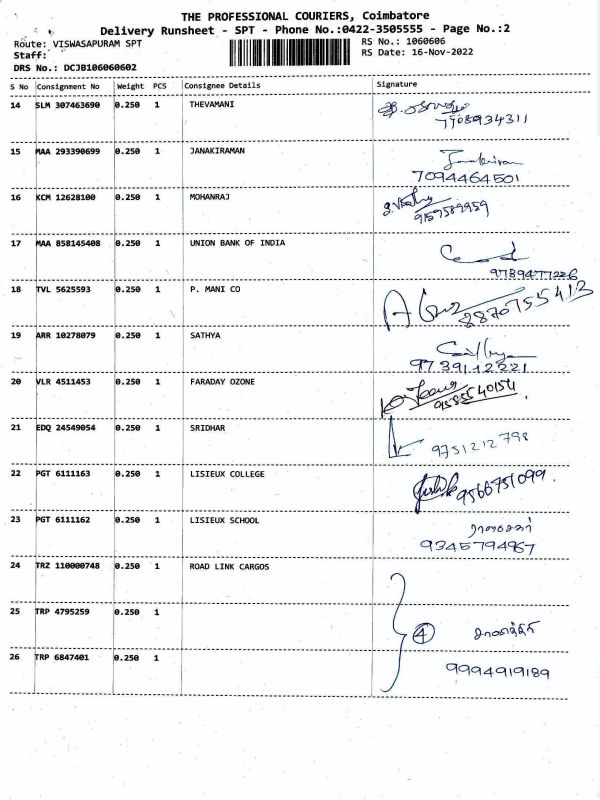 THE PROFESSIONAL COURIERS, Coimbatore
Delivery Runsheet - SPT - Phone No.:0422-3505555 - Page No.:2
Route: VISWASAPURAM SPT
RS No.: 1060606
Staff:
RS Date: 16-Nov-2022
DRS No.: DCJB106060602
S No Consignment No Weight PCS Consignee Details Signature
14 SLM 307463690 0.250 1 THEVAMANI
7708934311
15 MAA 293390699 0.250 1 JANAKIRAMAN
Janakiram
7094464501
16 KCM 12628100 0.250 1 MOHANRAJ
9157589959
17 MAA 858145408 0.250 1 UNION BANK OF INDIA
9789477226
18 TVL 5625593 0.250 1 P. MANI CO
8870755413
19 ARR 10278079 0.250 1 SATHYA
9739112221
20 VLR 4511453 0.250 1 FARADAY OZONE
9585540154
21 EDQ 24549054 0.250 1 SRIDHAR
9751212798
22 PGT 6111163 0.250 1 LISIEUX COLLEGE
9566751099
23 PGT 6111162 0.250 1 LISIEUX SCHOOL
9345794967
24 TRZ 110000748 0.250 1 ROAD LINK CARGOS
25 TRP 4795259 0.250 1
4
26 TRP 6847401 0.250 1
9994919189